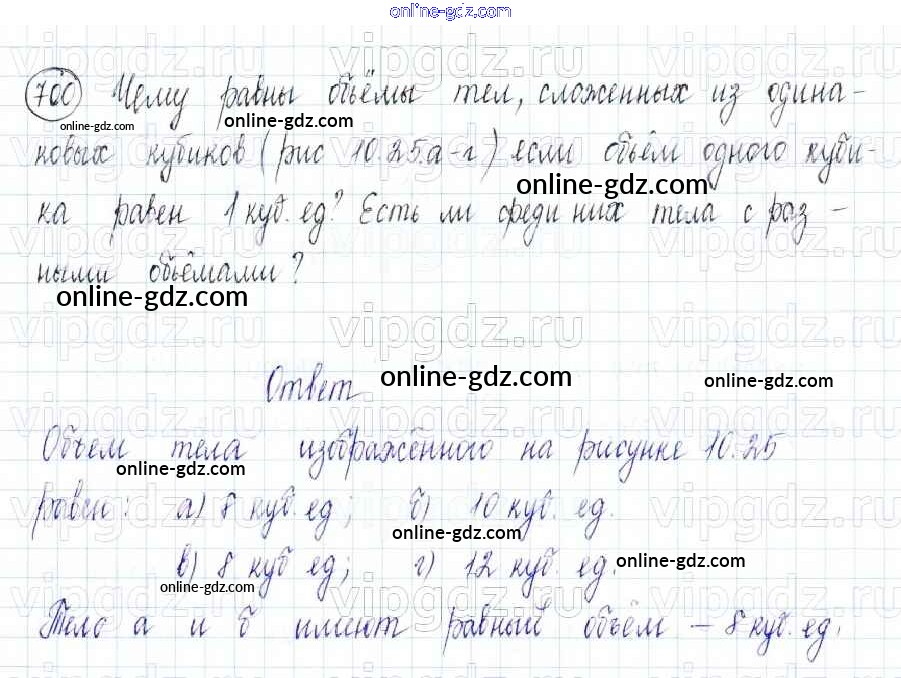 online-gdz.com
700 Чему равны объёмы тел, сложенных из одина-
online-gdz.com online-gdz.com
ковых кубиков (рис 10.25.а-г) если объём одного куби-
online-gdz.com
ка равен 1 куб. ед? Есть ли среди них тела с раз-
ными объёмами?
online-gdz.com
vipgdz.ru
Ответ online-gdz.com online-gdz.com
Объем тела изображённого на рисунке 10.25
online-gdz.com
равен: а) 8 куб. ед; б) 10 куб. ед.
online-gdz.com
в) 8 куб ед; г) 12 куб. ед. online-gdz.com
online-gdz.com
Тело а и б имеют равный объём – 8 куб. ед.